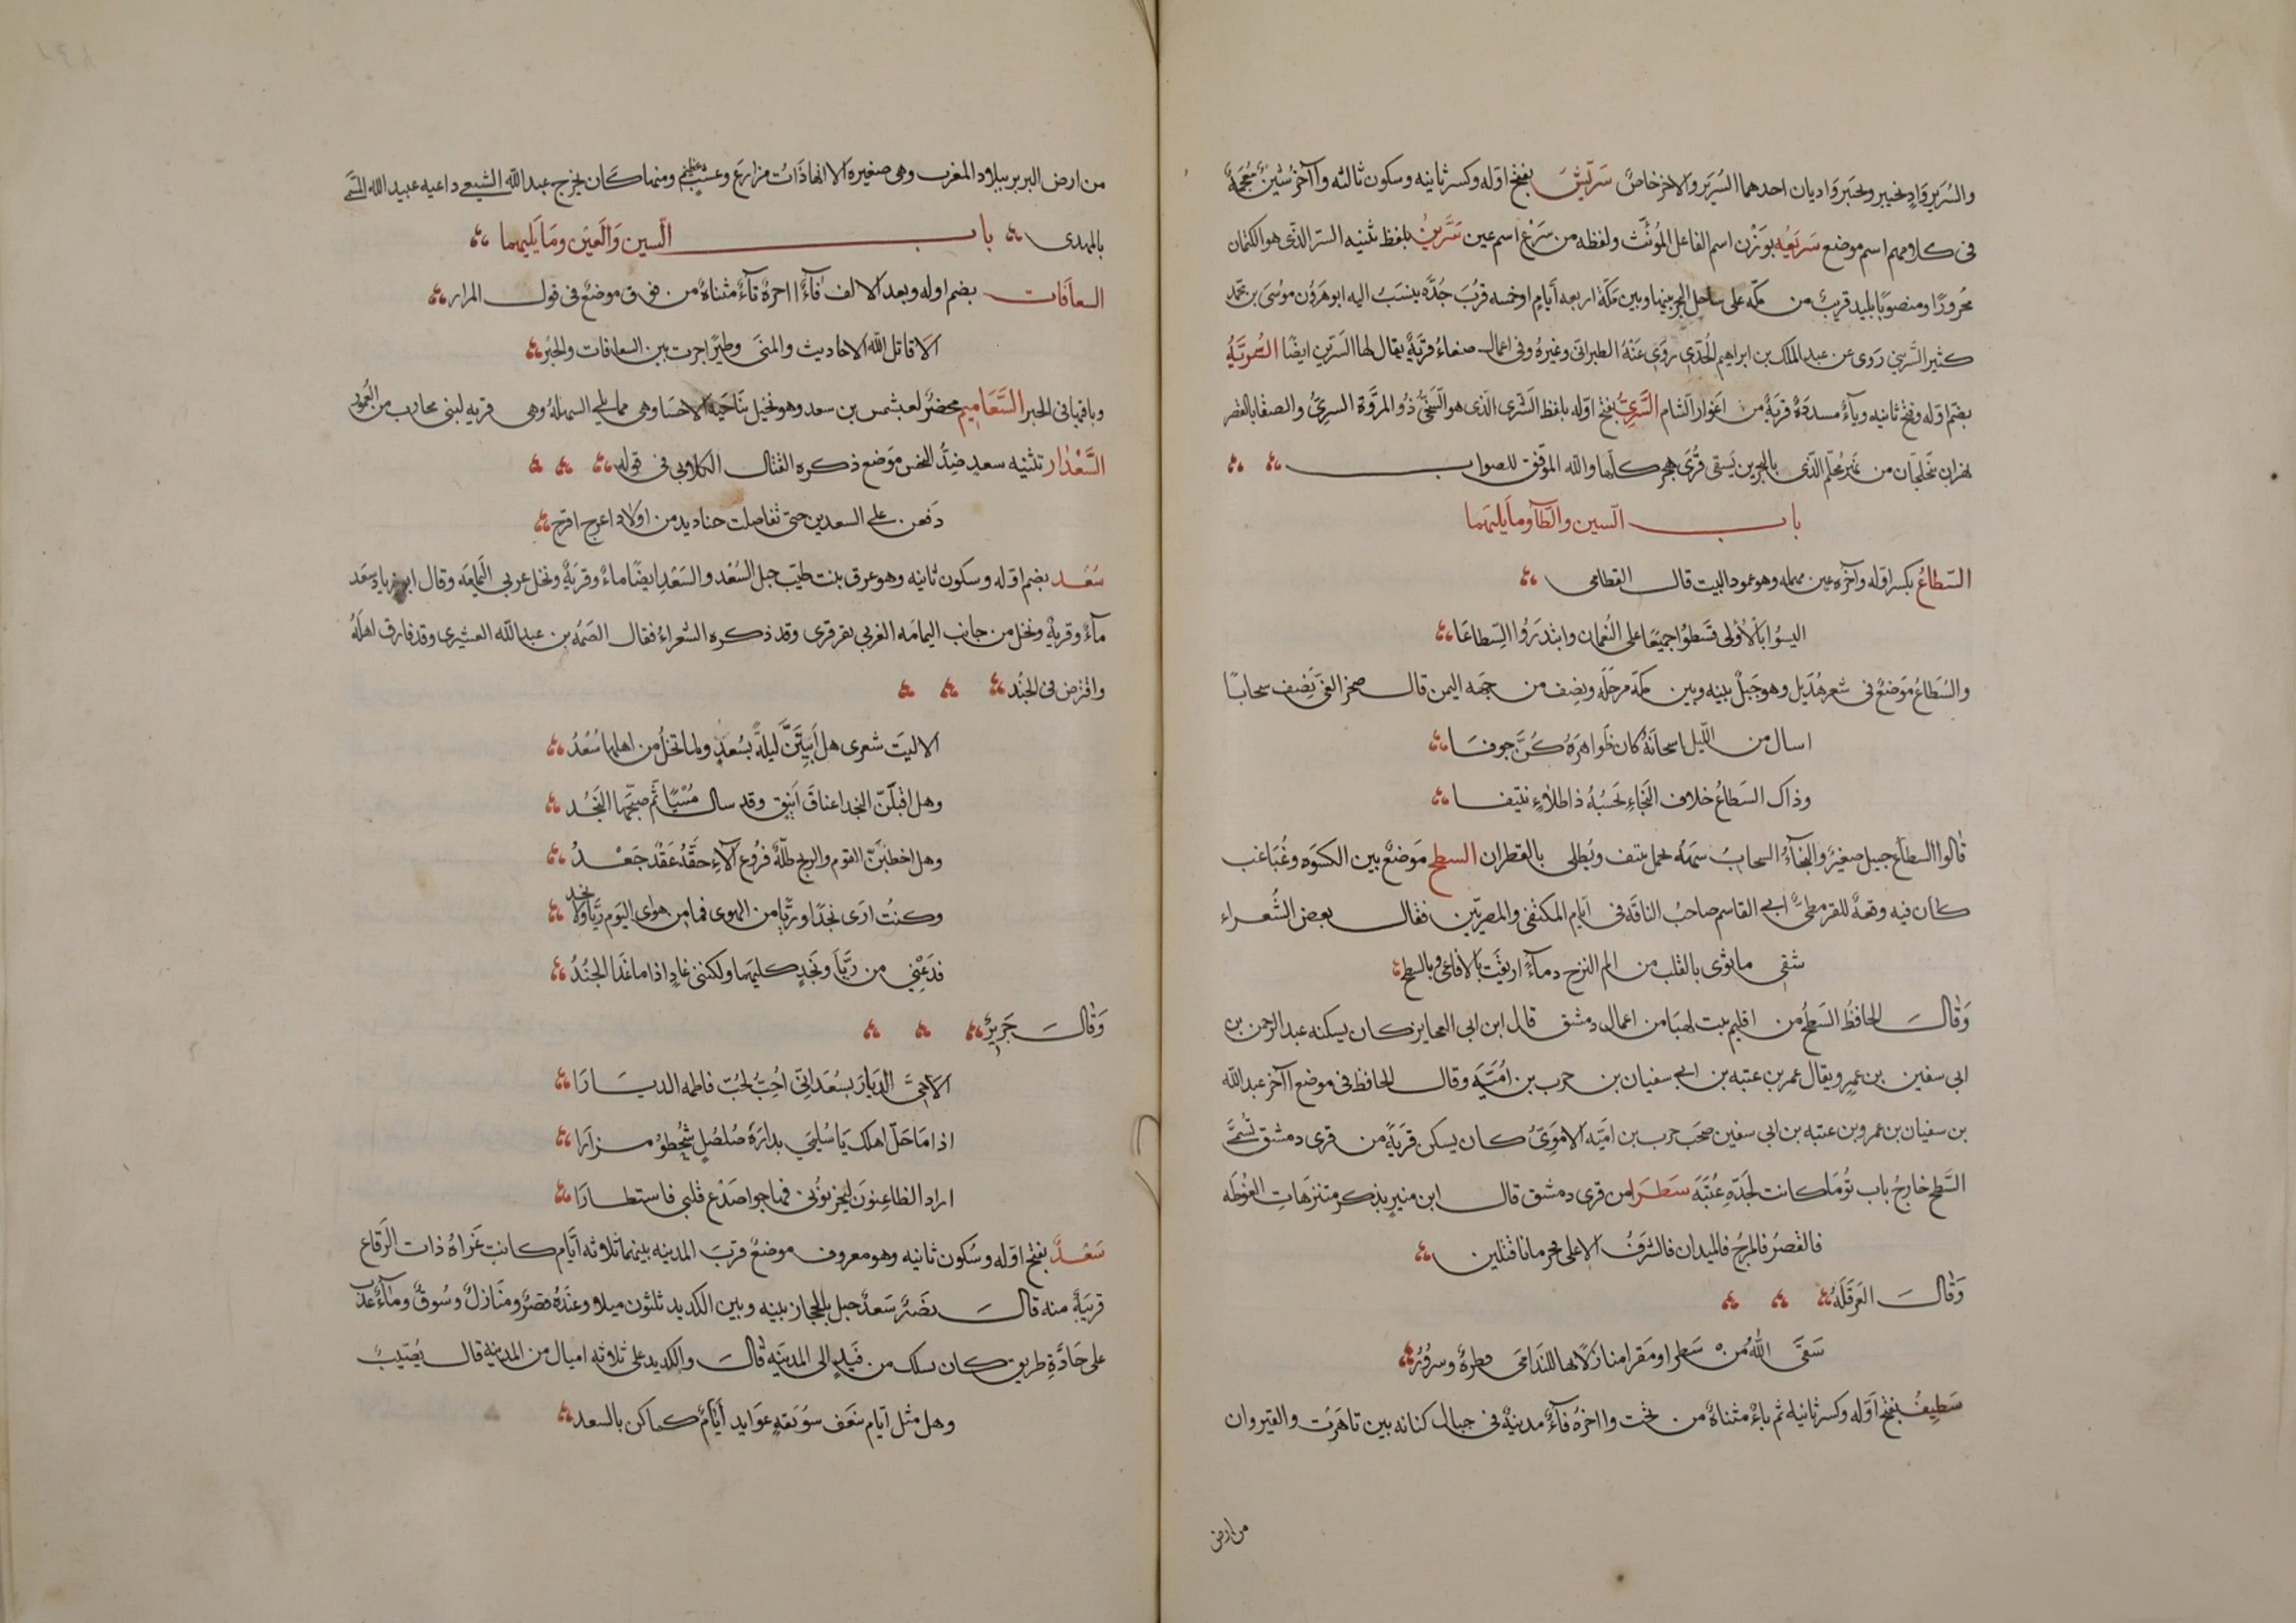 والسُرَير وَادٍ بخيبر وبخيبر وَاديان احدهما السُرَير والاخر خاصٌ سَرِيْش بفتح اوّله وكسر ثانيه وسكون ثالثه وا آخره شينٌ مُعجمَةٌ
فى كلامهم اسم موضع سَرِيعَه بوَزْن اسم الفاعل المُونَّث ولفظه من سَرَع اسم عين سَرَّين بلفظ تثنيه السر الذى هو الكتمان
مجرورًا ومنصوبًا بليد قريبٌ من مكّه على ساحل البحر بينها وبين مَكّة اربعه اَيامٍ او خمسه قربُ جُدَّه ينسَبُ اليه ابو هرَوُن موسَى بن محمّد
كثير السَّرينى رَوى عن عبد الملك بن ابراهيم الجُدّى روَى عَنْهُ الطبرانى وغيرهُ وفى اعمال صنعاءُ قرَيَةٌ يقال لها السَرّين ايضًا السُريَّةُ
بضمّ اوّله وفتح ثانيه وياءٌ مسددَةٌ قريَةٌ من اغوار الشام السَّرِيُّ بفتح اوّله بلفظ السّرى الذى هو السَخىُّ ذُو المرُوَّة السرىُّ والصفا بالقصر
نهران يتخلجَان من نهر مُحلّم الذى بالبحرين يَسقى قُرَى هجر كلّها والله الموّفق للصواب
باب السين والطَآ ومَا يَليهمَا
السّطاعُ بكسر اوّله وآخره عين مهمله وهو عمود البيت قال القطامى
اليسُوا بالأُولى قَسَطوُا جميعًا على النُعمان وابتدَرُوا السِّطاعَا
والسُطَاعُ مَوضعٌ فى شعر هُذَيل وهو جَبلٌ بينه وبين مكّة مرحلَه ونصِف من جهه اليمن قال صخر الغىّ يَصِف سحابًا
اسال من اللّيل اسحانَهُ كان ظَواهرَهُ كُنَّ جوفَا
وذاك السَطاعُ خلاف النجَاءِ تحَسَبُهُ ذا طلاءٍ نتيفا
قالوا السطاَع جبيل صغيرٌ والنجآءُ السحابُ سَمّه لحمل نتف ويُطلى بالقطران السطح مَوضعٌ بين الكسوَه وغُبَاغب
كان فيه وقعهٌ للقرمطىّ ابى القاسم صاحبُ الناقَه فى ايّام المكتفى والمصريّين فقال بعض الشُعراء
شقى ما ثوى بالقلب من الم النزح دمآءٌ اريقَت بالافاعى وبالسطح
وَقال الحافظُ السَطحُ من اقليم بيت لهيَا من اعمال دمشق قال ابن ابى العجايز كان يسكنه عبد الرحمن بن
ابى سفين بن عمرٍ ويقال عمر بن عتبه بن ابى سفيان بن حرب بن اُميَّه وقال الحافظ فى موضع اآخر عبد الله
بن سفيان بن عمرو بن عتبه بن ابى سفين صخب حرب بن اميّه الامَوىُّ كان يسكن قريَةٍ من قرى دمشق تُسَمَّى
السَّطح خارجُ باب تُومَا كانت لجَدّهِ عُتبَه سَطرَا من قرى دمشق قال ابن منيرٍ يذكر متنزهَاتِ الغوُطَه
فالقصرُ فالمرجُ فالميدان فالشرَفُ الاعلى فجرمانا فقنلين
وَقال العرَقَلَه
سَقَى اللهُ من سَطرا ومَقرا منازلاً بها للندامَى فطرهٌ وسرورُ
سَطِيفُ بفتح اوّله وكسر ثانيه ثم ياءٌ مثناهٌ من تحت وا اخرهُ فآءٌ مدينهٌ فى جبال كنانه بين تاهَرتُ والقيروان
من ارض
من ارض البربر ببلاد المغرب وهى صغيره الا انها ذَاتُ مزارعَ وعشبٍ عظيم ومنها كان يخرج عبد الله الشيعى داعيه عبيد الله المسَمَّى
بالمهدى باب السّين وَالعَين ومَا يَليهما
السعاَفات بضم اوله وبعد الالف فآءٌ ا احرهٌ تآءٌ مثناهٌ من فوق موضعٌ فى قول المرار
الا قاتل الله الاحاديث والمنَى وطيَرًا جرت بين السعافات والحبُر
وباقيها فى الحبر السَّعَاميم محضرٌ لعبشمس بن سعد وهو نخيل بنَاحيَه الاحسَا وهى مما يلى السهلهُ وهى قريه لبنى محارب من العُمور
السَّعْدٰان تثنيه سعدٍ ضِدُّ النحس موَضع ذكره القتال الكلابى فى قوله
دَفعن على السعدين حتى تفاصلت حناديد من اولاد اعوج اقرح
سُعْد بضم اوّله وسكون ثانيه وهو عرق بنت طيّب جبل السُعْد والسَعْد ايضًا ماءٌ وقريَةٌ ونخل عربى اليمَامَه وقال ابن زياد سعَد
مآءٌ وقريهٌ ونخل من جانب اليمامَه الغربى بقرقرى وقد ذكره الشعراءُ فقال الصَمُه بن عبد الله القشيرى وقد فارق اهلَهُ
وافترض فى الجُند
الا ليَت شعرى هل أبيَتَنَّ ليلَةً بسُعدٍ ولما تخلُ من اهلها سُعْدُ
وهل اقبلَنّ النجد اعناقَ اَينق وقد سال مُسْيًا ثّم صبّحها النَجُد
وهل اخطبَنَّ القوم والريح طلّهٌ فرُوع اَلآءِ حَفّهُ عَقْدَ جَعْدُ
وكنتُ ارَى نجَدًا وريًّا من الهوى فما من هواى اليَوم رَيَّا ولا نجد
فدَعْنى من رَيَّا ونَجَدٍ كليهما ولكننى غادٍ اذا ما غَدا الجنُدُ
وَقال جَريرٌ
الاَ حَىّ الديَارَ بسُعدَ انّى اُحبُّ لحُبّ فاطمه الديَارَا
اذا مَا حَلّ اهلك يَا سُليمَى بدارَهَ صُلصُلٍ شُحُطوُ مزارَا
اراد الظاعِنونَ ليحزنوُنى فهاجوا صَدْع قلبى فاستطارَا
سَعْدٌ بفتح اوّله وسُكون ثانيه وهو معروف موضعٌ قربَ المدينه بينهما ثلاثه ايّام كانت غَزاهُ ذات الرَقاع
قريَبةٌ منه قال نصَرٌ سَعدٌ جبل بالحجاز بينه وبين الكديد ثلثون ميلا وعندَهُ قصرٌ ومنَازلُ وسُوقٌ ومَآءٌ عذب
على جَادَّةِ طريق كان يسلك من فيَدٍ الى المدينَه قالَ والكديد على ثلاثه اميال من المدينه قال نُصَيبٌ
وهل مثل ايّام بنَعَف سوُيَقهٍ عوَايد أيّامٌ كما كن بالسعد